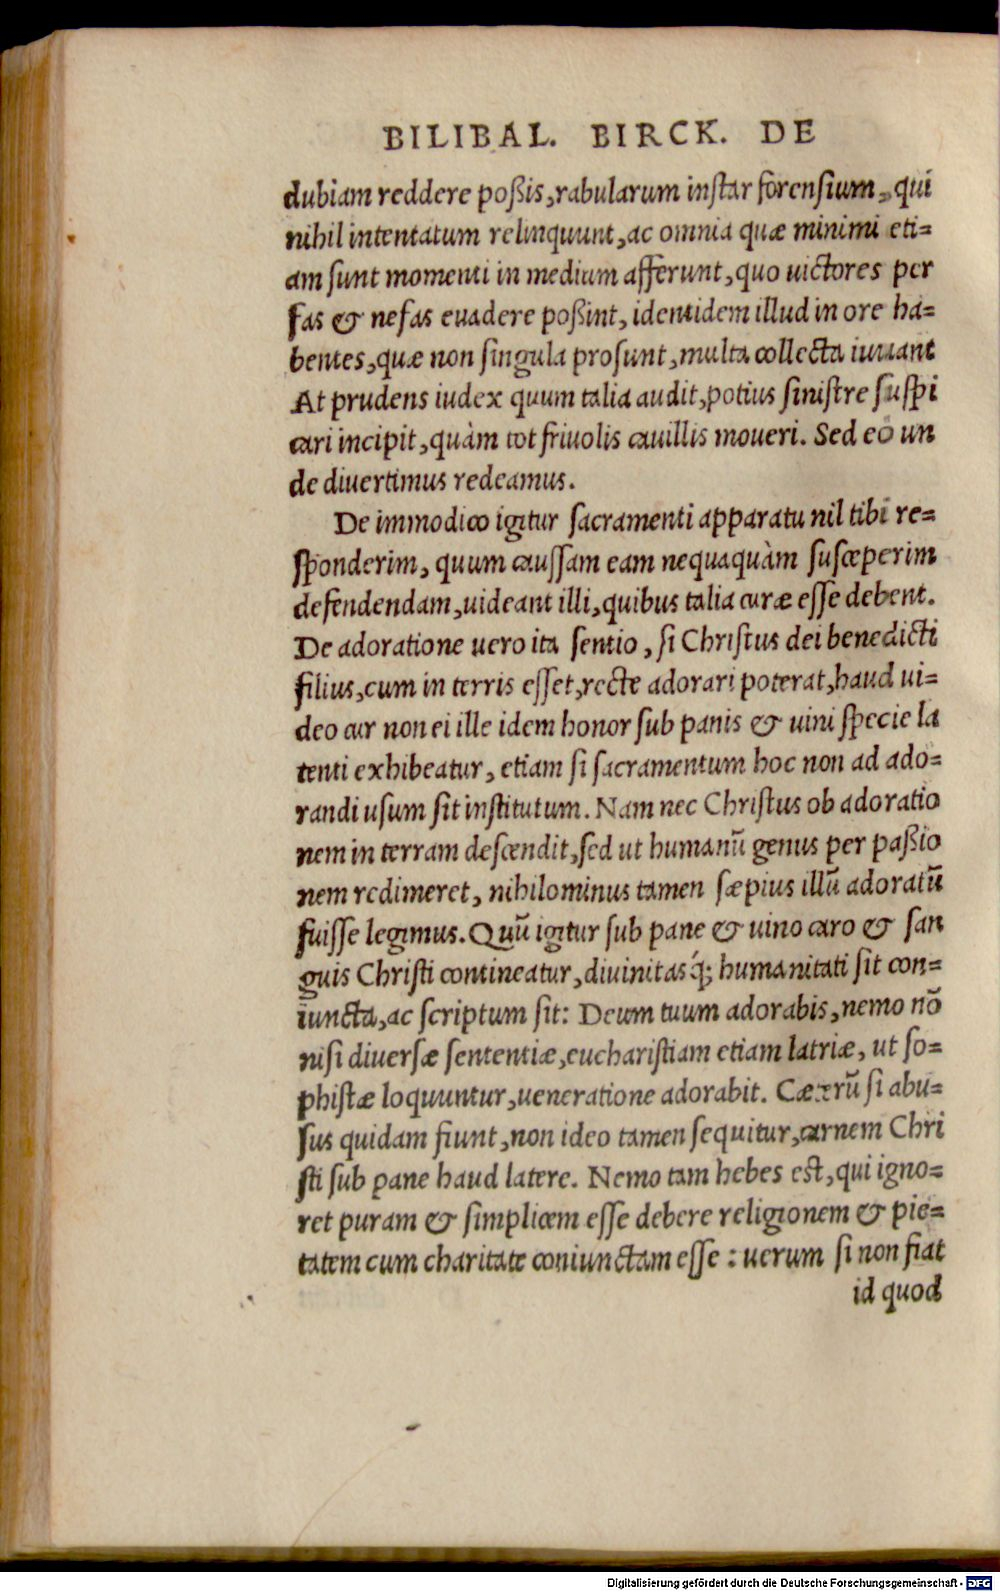 BILIBAL. BIRCK. DE
dubiam reddere poßis, rabularum instar forensium, qui
nihil intentatum relinquunt, ac omnia quæ minimi eti=
am sunt momenti in medium afferunt, quo uictores per
fas & nefas euadere poßint, identidem illud in ore ha=
bentes, quæ non singula prosunt, multa collecta iuuant
At prudens iudex quum talia audit, potius sinistre suspi
cari incipit, quàm tot friuolis cauillis moueri. Sed eò un
de diuertimus redeamus.
De immodico igitur sacramenti apparatu nil tibi re=
sponderim, quum caussam eam nequaquàm susceperim
defendendam, uideant illi, quibus talia curæ esse debent.
De adoratione uero ita sentio, si Christus dei benedicti
filius, cum in terris esset, recte adorari poterat, haud ui=
deo cur non ei ille idem honor sub panis & uini specie la
tenti exhibeatur, etiam si sacramentum hoc non ad ado=
randi usum sit institutum. Nam nec Christus ob adoratio
nem in terram descendit, sed ut humanū genus per paßio
nem redimeret, nihilominus tamen sæpius illū adoratū
fuisse legimus. Quū igitur sub pane & uino caro & san
guis Christi contineatur, diuinitasq́; humanitati sit con=
iuncta, ac scriptum sit: Deum tuum adorabis, nemo nō
nisi diuersæ sententiæ, eucharistiam etiam latriæ, ut so=
phistæ loquuntur, ueneratione adorabit. Cæterū si abu=
sus quidam fiunt, non ideo tamen sequitur, carnem Chri
sti sub pane haud latere. Nemo tam hebes est, qui igno=
ret puram & simplicem esse debere religionem & pie=
tatem cum charitate coniunctam esse: uerum si non fiat
id quod
Digitalisierung gefördert durch die Deutsche Forschungsgemeinschaft - DFG